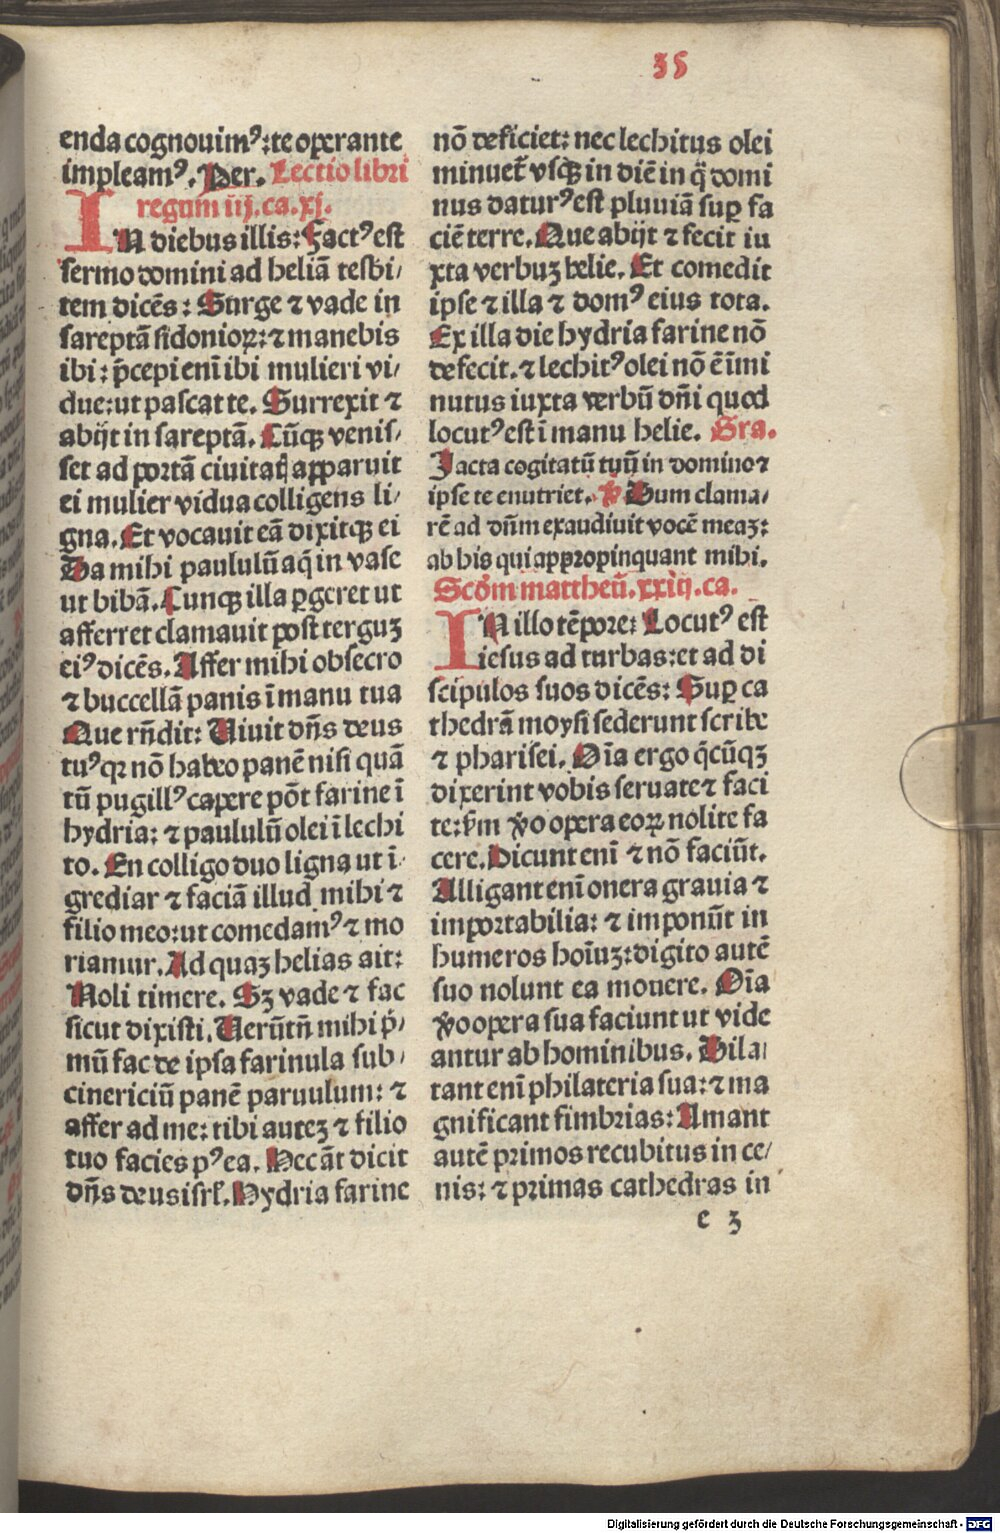 35
enda cognouimꝰ: te operante
impleamꝰ. Per. Lectio libri
regum iij. ca. xj.
IN diebus illis: Factꝰ est
sermo domini ad heliā tesbi/
tem dicēs: Surge ⁊ vade in
sareptā sidonioꝝ: ⁊ manebis
ibi: p̄cepi enī ibi mulieri vi/
due: ut pascat te. Surrexit ⁊
abijt in sareptā. Cūqꝫ venis/
set ad portā ciuitatꝭ apparuit
ei mulier vidua colligens li/
gna. Et vocauit eā dixitqꝫ ei
Da mihi paululū aq̄ in vase
ut bibā. Cunqꝫ illa ꝑgeret ut
afferret clamauit post terguꝫ
eiꝰ dicēs. Affer mihi obsecro
⁊ buccellā panis ī manu tua
Que rn̄dit: Viuit dn̄s deus
tuꝰ qꝛ nō habeo panē nisi quā
tū pugillꝰ capere pōt farine ī
hydria: ⁊ paululū olei ī lechi
to. En colligo duo ligna ut ī
grediar ⁊ faciā illud mihi ⁊
filio meo: ut comedamꝰ ⁊ mo
riamur. Ad quaꝫ helias ait:
Noli timere. Sꝫ vade ⁊ fac
sicut dixisti. Verūtn̄ mihi p̄/
mū fac de ipsa farinula sub/
cinericiū panē paruulum: ⁊
affer ad me: tibi auteꝫ ⁊ filio
tuo facies pꝰ ea. Hec āt dicit
dn̄s deus isrl̄. Hydria farine
nō deficiet: nec lechitus olei
minuet᷑ vsqꝫ in diē in q̄ domi
nus daturꝰ est pluuiā suꝑ fa
ciē terre. Que abijt ⁊ fecit iu
xta verbuꝫ helie. Et comedit
ipse ⁊ illa ⁊ domꝰ eius tota.
Ex illa die hydria farine nō
defecit. ⁊ lechitꝰ olei nō ē īmi
nutus iuxta verbū dn̄i quod
locutꝰ est ī manu helie. Gra.
Jacta cogitatū tuū in domino ⁊
ipse te enutriet. ℣ Dum clama/
rē ad dn̄m exaudiuit vocē meaꝫ:
ab his qui appropinquant mihi.
Scd̄m mattheū. xxiij. ca.
IN illo tēpore: Locutꝰ est
iesus ad turbas: et ad di
scipulos suos dicēs: Suꝑ ca
thedrā moysi sederunt scribe
⁊ pharisei. Oīa ergo q̄cūqꝫ
dixerint vobis seruate ⁊ faci
te: ẜm ꝟo opera eoꝝ nolite fa
cere. Dicunt enī ⁊ nō faciūt.
Alligant enī onera grauia ⁊
importabilia: ⁊ imponūt in
humeros hoīuꝫ: digito autē
suo nolunt ea mouere. Oīa
ꝟo opera sua faciunt ut vide
antur ab hominibus. Dila/
tant enī philateria sua: ⁊ ma
gnificant fimbrias: Amant
autē primos recubitus in ce/
nis: ⁊ primas cathedras in
e 3
Digitalisierung gefördert durch die Deutsche Forschungsgemeinschaft - DFG